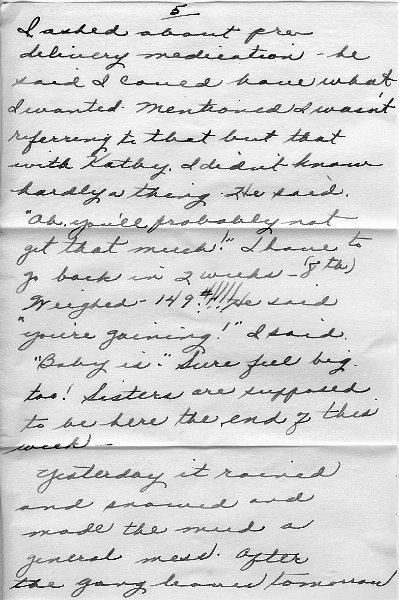 5
I asked about pre
delivery medication - he
said I could have what
I wanted. Mentioned I wasn't
referring to that but that
with Kathy, I didn't know
hardly a thing. He said,
"Oh, you'll probably not
get that much!" I have to
go back in 2 weeks - (8th)
Weighed - 149#!!!! He said
"you're gaining!" I said,
"Baby is." Sure feel big
too! Sisters are supposed
to be here the end of this
week -
Yesterday it rained
and snowed and
made the mud a
general mess. After
the gang leaves tomorrow